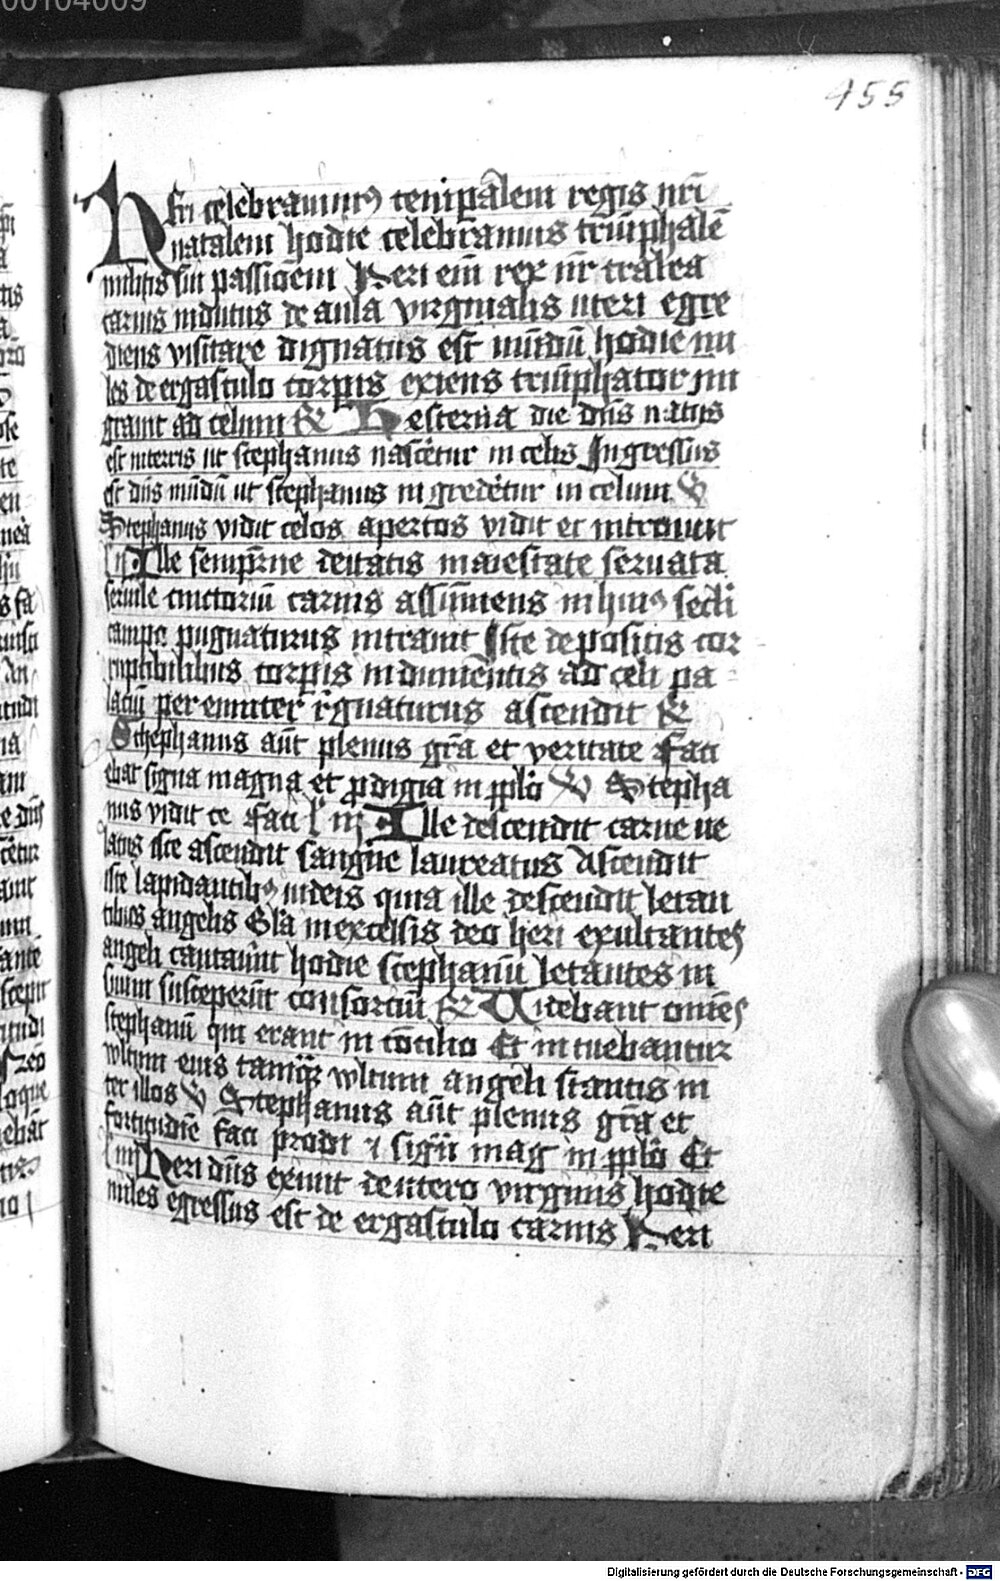 455
Heri celebrauimus temporalem regis nr̄i
natalem hodie celebramus triūphalē
militis sui passiōem Heri eiñ rex nr̄ trabea
carnis indutus de aula virginalis uteri egre
diens visitare dignatus est mūdū hodie mi
les de ergastulo corpis exiens triūphator mi
grauit ad celum & Hesterna die dn̄s natus
est in terris ut stephanus nascēt̄ur in celis Ingressus
est dn̄s mūdū ut stephanus in gredet̄ur in celum W
Stephanus vidit celos apertos vidit et introiuit
Ille semp̄rne deitatis maiestate seruata
seruile cinctoriū carnis assūmens in huiꝰ secl̄i
campo pugnaturus intrauit Iste depositis cor
ruptibilibus corpis indumētis ad celi pa
latiū perenniter r̄gnaturus ascendit &
Stephanus aūt plenus gr̄a et veritate Faci
ebat signa magna et prodigia in pplō W Stepha
nus vidit ce Faci l iij Ille descendit carne ue
latus iste ascendit sangīne laureatus Ascendit
iste lapidantibꝰ iudeis quia ille descendit letan
tibus angelis Gl̄a in excelsis deo heri exultantes
angeli cantauūt hodie stephanū letantes in
suum susceperūt consorciū & Uidebant omēs
stephanū qui erant in cōcilio Et intuebantur
wltum eius tamq̄ wltum angeli stantis in
ter illos W Stephanus aūt plenus gr̄a et
fortitudīe Faci prodi ⁊ signū mag in pplō Et
Heri dn̄s exiuit de utero virginis hodie
miles egressus est de ergastulo carnis Heri
Digitalisierung gefördert durch die Deutsche Forschungsgemeinschaft - DFG